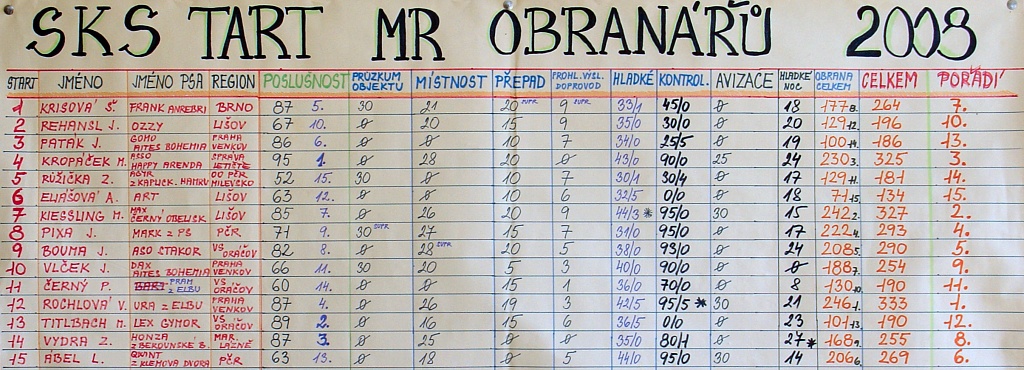 SKS TART MR OBRANÁŘŮ 2008
START JMÉNO JMÉNO PSA REGION POSLUŠNOST PRŮZKUM OBJEKTU MÍSTNOST PŘEPAD PROHL. VÝSL. DOPROVOD HLADKÉ KONTROL. AVIZACE HLADKÉ NOC OBRANA CELKEM CELKEM POŘADÍ
1 KRISOVÁ Š. FRANK ANREBRI BRNO 87 5. 30 21 20 SUPR 9 SUPR 33/1 45/0 0 18 177 8. 264 7.
2 REHANSL J. OZZY LIŠOV 67 10. 0 20 15 9 35/0 30/0 0 20 129 12. 196 10.
3 PATÁK J. GOMO AITES BOHEMIA PRAHA VENKOV 86 6. 0 0 10 7 34/0 25/5 0 19 100 14. 186 13.
4 KROPÁČEK M. ASSO HAPPY ARENDA SPRÁVA LETIŠTĚ 95 1. 0 28 20 0 43/0 90/0 25 24 230 3. 325 3.
5 RŮŽIČKA Z. Z KAPLICK. HAMRU MILEVSKO 52 15. 30 0 10 7 30/1 30/4 0 17 129 11. 181 14.
6 ELIÁŠOVÁ A. ART LIŠOV 63 12. 0 0 10 6 32/5 0/0 0 18 71 15. 134 15.
7 KIESSLING M. MAX ČERNÝ OBELISK LIŠOV 85 7. 0 26 20 9 44/3 * 95/0 30 15 242 2. 327 2.
8 PIXA J. MARK z PS PČR 71 9. 30 SUPR 27 15 7 31/0 95/0 0 17 222 4. 293 4.
9 BOUMA J. ASO STAKOR VS ORÁČOV 82 8. 0 28 SUPR 20 5 38/0 93/0 0 24 208 5. 290 5.
10 VLČEK J. DAX AITES BOHEMIA PRAHA VENKOV 66 11. 30 20 5 3 40/0 90/0 0 0 188 7. 254 9.
11 ČERNÝ P. PRAM z ELBU VS ORÁČOV 60 14. 0 0 15 1 36/0 70/0 0 8 130 10. 190 11.
12 ROCHLOVÁ V. URA z ELBU PRAHA VENKOV 87 4. 0 26 19 3 42/5 95/5 * 30 21 246 1. 333 1.
13 TITLBACH M. LEX GYMOR VS ORÁČOV 89 2. 0 16 15 6 36/5 0/0 0 23 101 13. 190 12.
14 VYDRA Z. HONZA Z BEROUNSKÉ B. MAR. LÁZNĚ 87 3. 0 25 0 0 35/0 80/1 0 27 * 168 9. 255 8.
15 ÁBEL L. QUINT Z KLEMOVA DVORA PČR 63 13. 0 18 0 5 44/0 95/0 30 14 206 6. 269 6.